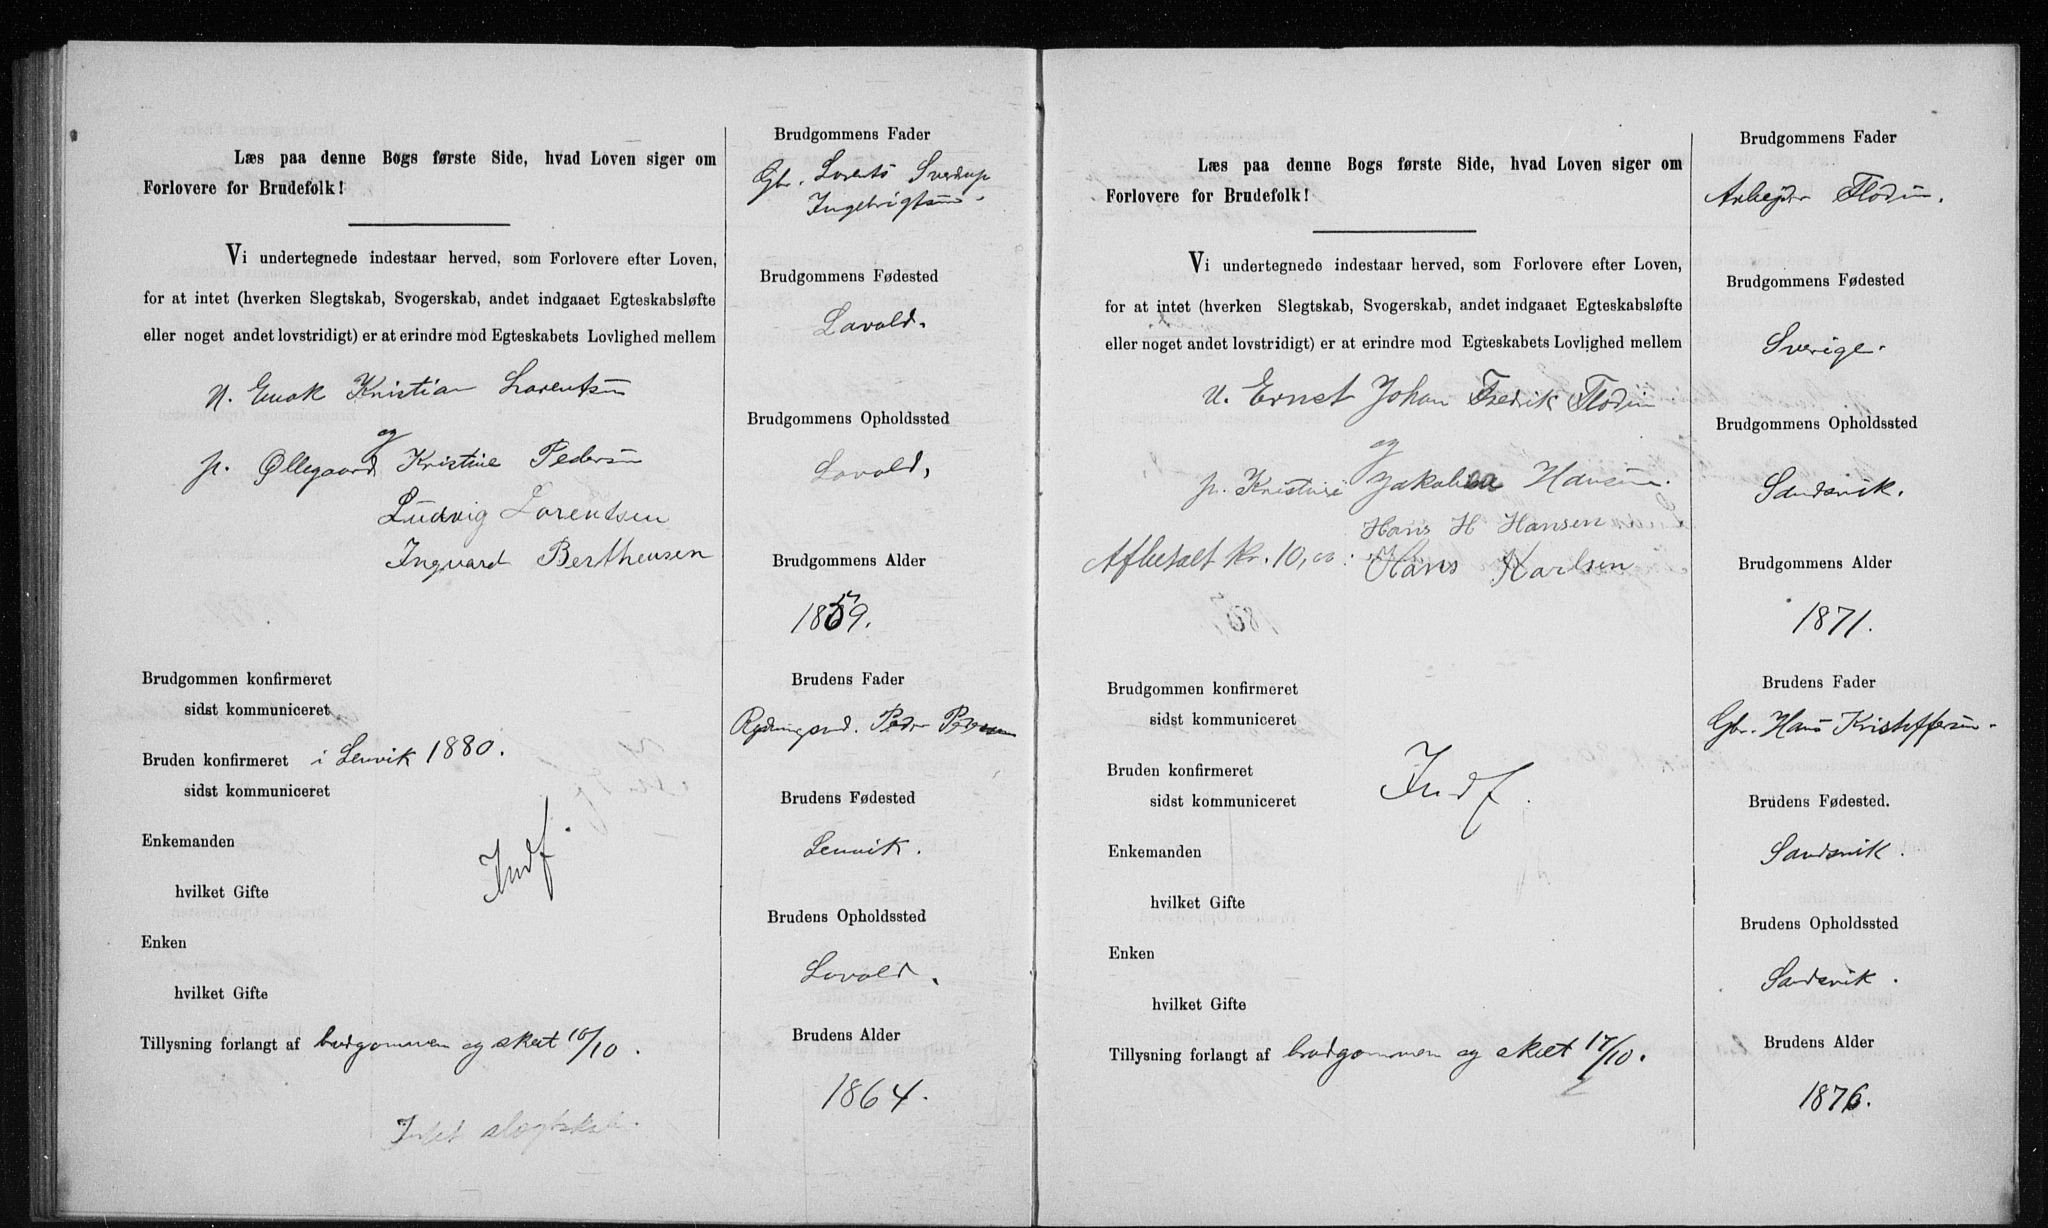 Læs paa denne Bogs første Side, hvad Loven siger om
Forlovere for Brudefolk!
Vi undertegnede indestaar herved, som Forlovere efter Loven,
for at intet (hverken Slegtskab, Svogerskab, andet indgaaet Egteskabsløfte
eller noget andet lovstridigt) er at erindre mod Egteskabets Lovlighed mellem
U. Enok Kristian Lorentsen
og
p. Øllegaard Kristine Pedersen
Ludvig Lorentsen
Ingvard Berthensen
Brudgommen konfirmeret
sidst kommuniceret
Bruden konfirmeret i Lenvik 1880.
sidst kommuniceret
Indf.
Enkemanden
hvilket Gifte
Enken
hvilket Gifte
Tillysning forlangt af brudgommen og skeet 10/10.
Intet slægtskab.
Brudgommens Fader
Gbr. Lorents Sverdup
Ingebrigtsen.
Brudgommens Fødested
Lavold.
Brudgommens Opholdssted
Lovold,
Brudgommens Alder
1859.
Brudens Fader
Rydningsmd. Peder Pedersen
Brudens Fødested
Lenvik.
Brudens Opholdssted
Lovold.
Brudens Alder
1864.
Læs paa denne Bogs første Side, hvad Loven siger om
Forlovere for Brudefolk!
Vi undertegnede indestaar herved, som Forlovere efter Loven,
for at intet (hverken Slegtskab, Svogerskab, andet indgaaet Egteskabsløfte
eller noget andet lovstridigt) er at erindre mod Egteskabets Lovlighed mellem
U. Ernst Johan Fredrik Flodin
og
p. Kristine Jakobine Hansen.
Hans H Hansen
Afbetalt kr. 10,00: Hans Karlsen
Brudgommen konfirmeret
sidst kommuniceret
Bruden konfirmeret
sidst kommuniceret
Indf.
Enkemanden
hvilket Gifte
Enken
hvilket Gifte
Tillysning forlangt af brudgommen og skeet 17/10.
Brudgommens Fader
Arbejder Flodin.
Brudgommens Fødested
Sverige.
Brudgommens Opholdssted
Sandsvik.
Brudgommens Alder
1871.
Brudens Fader
Gbr. Hans Kristoffersen.
Brudens Fødested.
Sandsvik.
Brudens Opholdssted
Sandsvik.
Brudens Alder
1876.